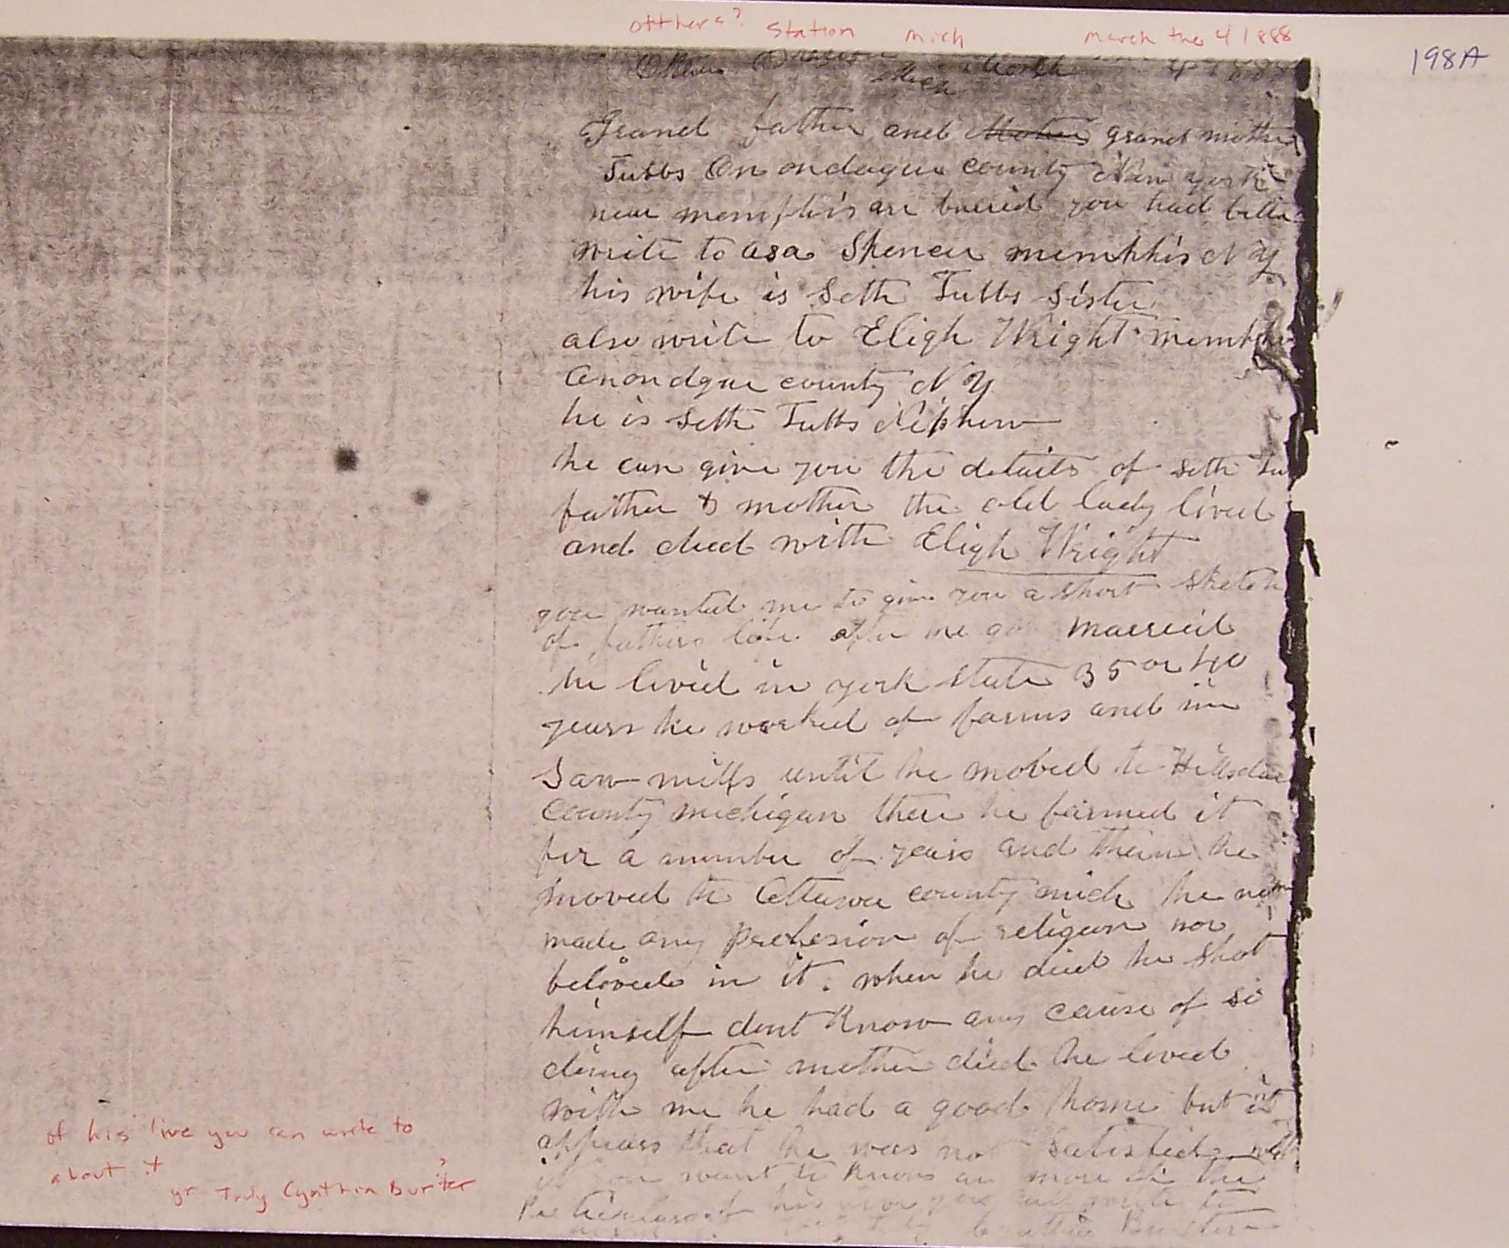 otthers? Station Mich March the 4 1888
198A
March 4 1888
Mich
Grand father and Mother grand mother
Tubbs On ondagua county New york
near memphis are buried you had bettr
write to asa Spencer memphis N Y
his wife is Seth Tubbs sister
also write to Eligh Wright memphis
Onondgue county N Y
he is Seth Tubbs Nephew
he can give you the details of Seth Tu
father & mother the old lady lived
and died with Eligh Wright
you wanted me to give you a short sketch
of fathers life after he got marreid
he lived in york state 35 or 40
years he worked of farms and in
Saw mills until he moved to Hillsdale
County michigan there he farmed it
for a number of years and then he
moved to Ottawa county mich he
made any profesion of religion nor
beloved in it. when he died he shot
himself dont Know any cause of so
doing after mother died he lived
with me he had a good home but it
appears that he was not satisfied with
if you want to know any more in the
Perticulars of his you can write to
Burter
of his live you can write to
about it
yr Truly Cynthia Burter